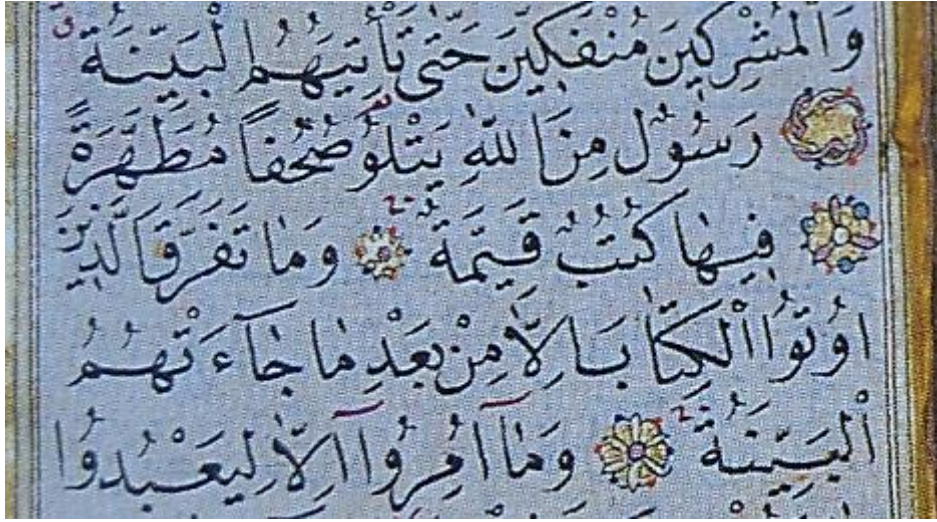 وَالْمُشْرِكِينَ مُنْفَكِّينَ حَتَّى تَأْتِيَهُمُ الْبَيِّنَةُ
رَسُولٌ مِنَ اللهِ يَتْلُو صُحُفًا مُطَهَّرَةً
فِيهَا كُتُبٌ قَيِّمَةٌ وَمَا تَفَرَّقَ الَّذِينَ
اُوتُوا الْكِتَابَ اِلَّا مِنْ بَعْدِ مَا جَآءَتْهُمُ
الْبَيِّنَةُ وَمَآ اُمِرُوٓا اِلَّا لِيَعْبُدُوا